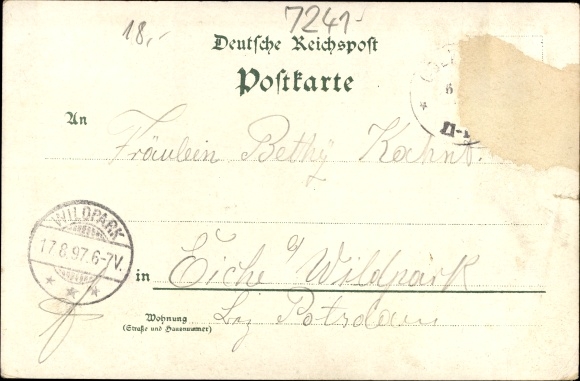 18,-
7241-
Deutsche Reichspost
Postkarte
An
Fräulein Bethy Kahnt.
WILDPARK
17.8.97.6-7V.
in Eiche a/ Wildpark
Wohnung
(Straße und Hausnummer)
bei Potsdam